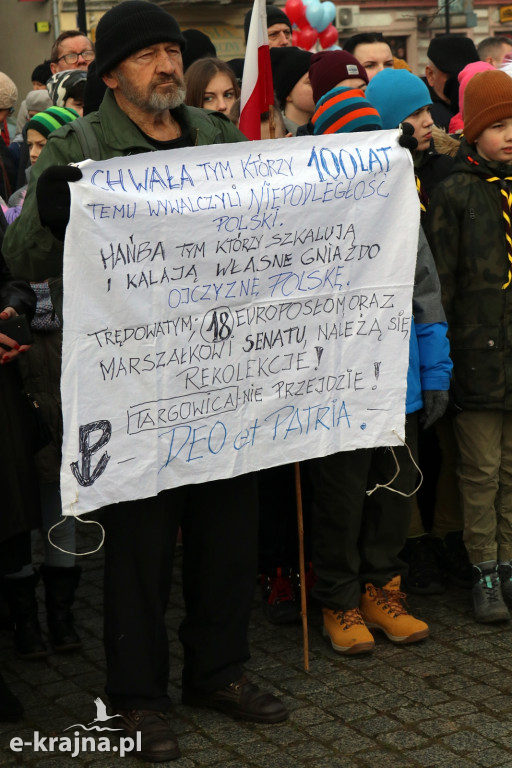 CHWAŁA TYM KTÓRZY 100 LAT
TEMU WYWALCZYLI NIEPODLEGŁOŚĆ
POLSKI.
HAŃBA TYM KTÓRZY SZKALUJĄ
I KALAJĄ WŁASNE GNIAZDO
OJCZYZNĘ POLSKĘ.
TRĘDOWATYM; 18 EUROPOSŁOM ORAZ
MARSZAŁKOWI SENATU, NALEŻĄ SIĘ
REKOLEKCJE!
TARGOWICA - NIE PRZEJDZIE!
- DEO et PATRIA. -
e-krajna.pl